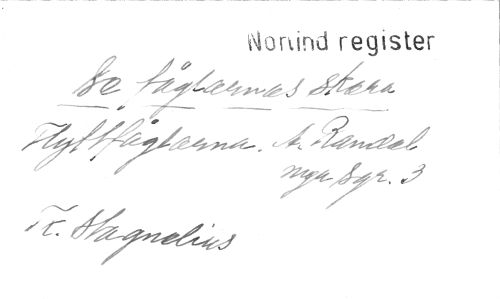 Norlind register
Se fåglarnas skara
Flyttfåglarna. A. Randel
nya Sgr. 3
Tr. Stagnelius